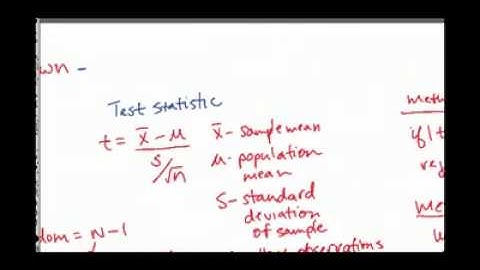 wn -
Test statistic
t = x̄ - μ / s/√n
x̄ - sample mean
μ - population
mean
S - standard
deviation
of sample
dom = N - 1
observations
if | t